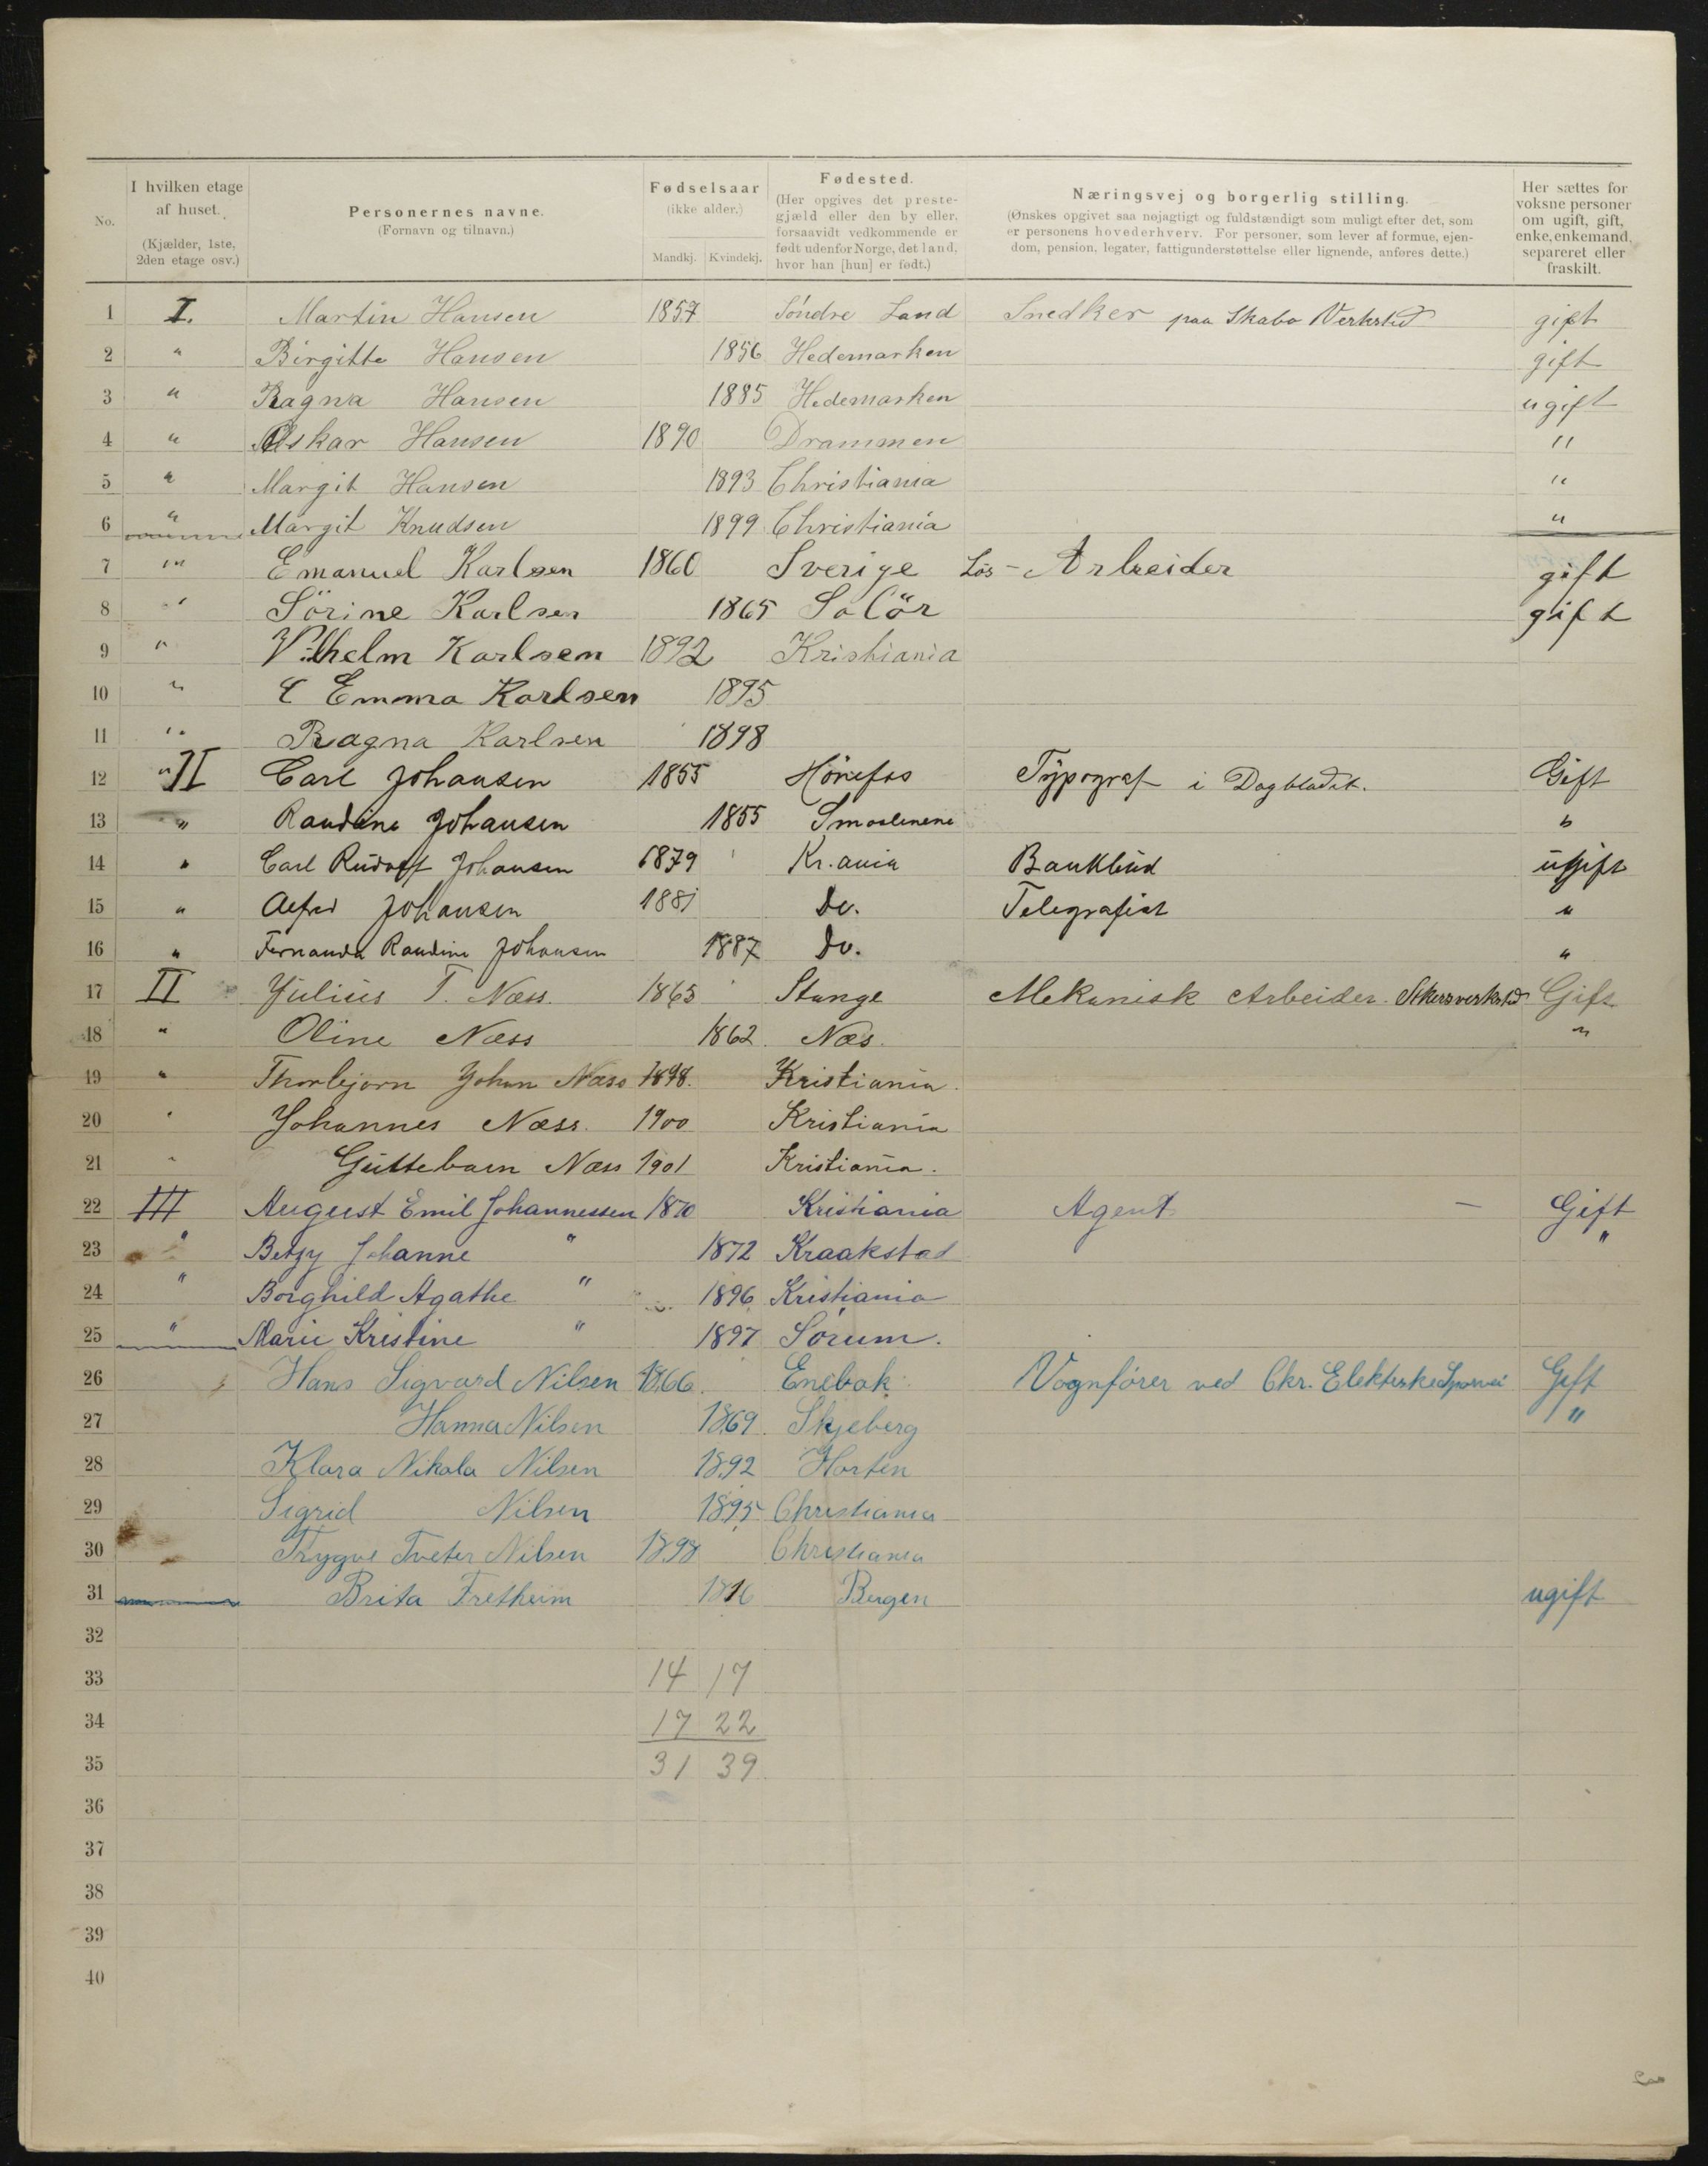 No.
I hvilken etage af huset. (Kjælder, 1ste, 2den etage osv.)
Personernes navne. (Fornavn og tilnavn.)
Fødselsaar (ikke alder.) Mandkj. Kvindekj.
Fødested. (Her opgives det prestegjæld eller den by eller, forsaavidt vedkommende er født udenfor Norge, det land, hvor han [hun] er født.)
Næringsvej og borgerlig stilling. (Ønskes opgivet saa nøjagtigt og fuldstændigt som muligt efter det, som er personens hovederhverv. For personer, som lever af formue, ejendom, pension, legater, fattigunderstøttelse eller lignende, anføres dette.)
Her sættes for voksne personer om ugift, gift, enke, enkemand, separeret eller fraskilt.
1 I. Martin Hansen 1857 Söndre Land Snedker paa Skabo Verksted gift
2 " Birgitte Hansen 1856 Hedemarken gift
3 " Ragna Hansen 1885 Hedemarken ugift
4 " Oskar Hansen 1890 Drammen "
5 " Margit Hansen 1893 Christiania "
6 " Margit Knudsen 1899 Christiania "
7 " Emanuel Karlsen 1860 Sverige Lös-Arbeider gift
8 " Sörine Karlsen 1865 Solör gift
9 " Vilhelm Karlsen 1892 Kristiania
10 " Emma Karlsen 1895
11 " Ragna Karlsen 1898
12 " II Carl Johansen 1855 Hönefos Typograf i Dagbladet. Gift
13 " Randine Johansen 1855 Smaalenene "
14 " Carl Rudolf Johansen 1879 Kr.ania Bankbud ugift
15 " Alfred Johansen 1881 Do. Telegrafist "
16 " Fernanda Randine Johansen 1887 Do. "
17 II Julius T. Næss. 1865 Stange Mekanisk Arbeider. Gift
18 " Oline Næss 1862. Næs. "
19 " Thorbjørn Johan Næss 1898. Kristiania.
20 " Johannes Næss. 1900 Kristiania
21 " Guttebarn Næss 1901 Kristiania.
22 III August Emil Johannessen 1870 Kristiania Agent — Gift
23 " Betzy Johanne " 1872 Kraakstad "
24 " Borghild Agathe " 1896 Kristiania
25 " Marie Kristine " 1897 Sørum.
26 Hans Sigvard Nilsen 1866. Enebak Vognfører ved Chr. Elektriske Sporvei Gift
27 Hanna Nilsen 1869. Skjeberg "
28 Klara Nikola Nilsen 1892 Horten
29 Sigrid Nilsen 1895 Christiania
30 Trygve Tveter Nilsen 1898 Christiania
31 Brita Fretheim Bergen ugift
32
33 14 17
34 17 22
35 31 39
36
37
38
39
40